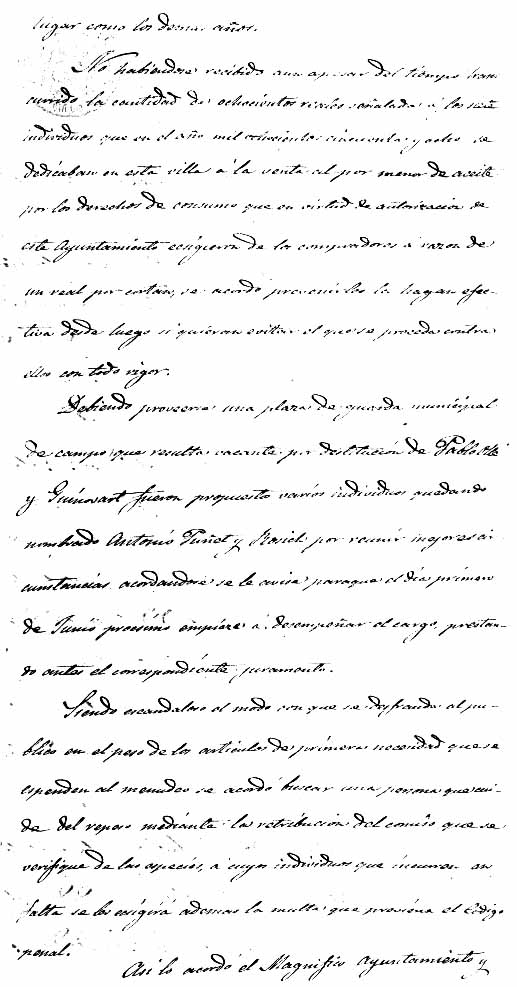 lugar como los demas años.
No habiendose recibido aun apesar del tiempo trans
currido la cantidad de ochocientos reales señalada á los seis
individuos que en el año mil ochocientos cincuenta y ocho se
dedicaban en esta villa á la venta al por menor de aceite
por los derechos de consumo que en virtud de autorizacion de
este Ayuntamiento ecsigieron de los compradores á razon de
un real por cortán, se acordó prevenirles la hagan efec-
tiva desde luego si quieren evitar el que se proceda contra
ellos con todo rigor.
Debiendo proveerse una plaza de guarda municipal
de campo que resulta vacante por destitución de Pablo
y Guinovart fueron propuesto varios individuos quedando
nombrado Antonio Tuñet y Rosich por reunir mejores cir
cunstancias acordandose se le avise paraque el dia primero
de Junio procsimo empieze á desempeñar el cargo, prestan-
do antes el correspondiente juramento.
Siendo escandaloso el modo con que se defrauda al pu-
blico en el peso de los articulos de primera necesidad que se
espenden al menudeo se acordó buscar una persona que cui-
de del repeso mediante la retribucion del comiso que se
verifique de las especies, á cuyos individuos que incurran en
falta se les ecsigirá ademas la multa que presiona el Codigo
penal.
Asi lo acordó el Magnifico Ayuntamiento y